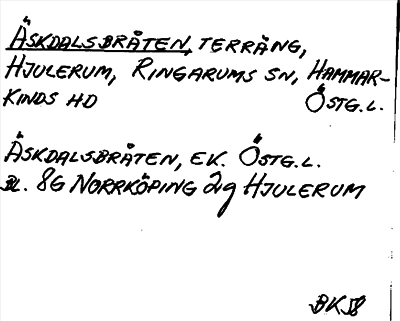 ÄSKDALSBRÅTEN, TERRÄNG,
HJULERUM, RINGARUMS SN, HAMMAR-
KINDS HD ÖSTG.L.
ÄSKDALSBRÅTEN, EK. ÖSTG.L.
BL. 8G NORRKÖPING 2g HJULERUM